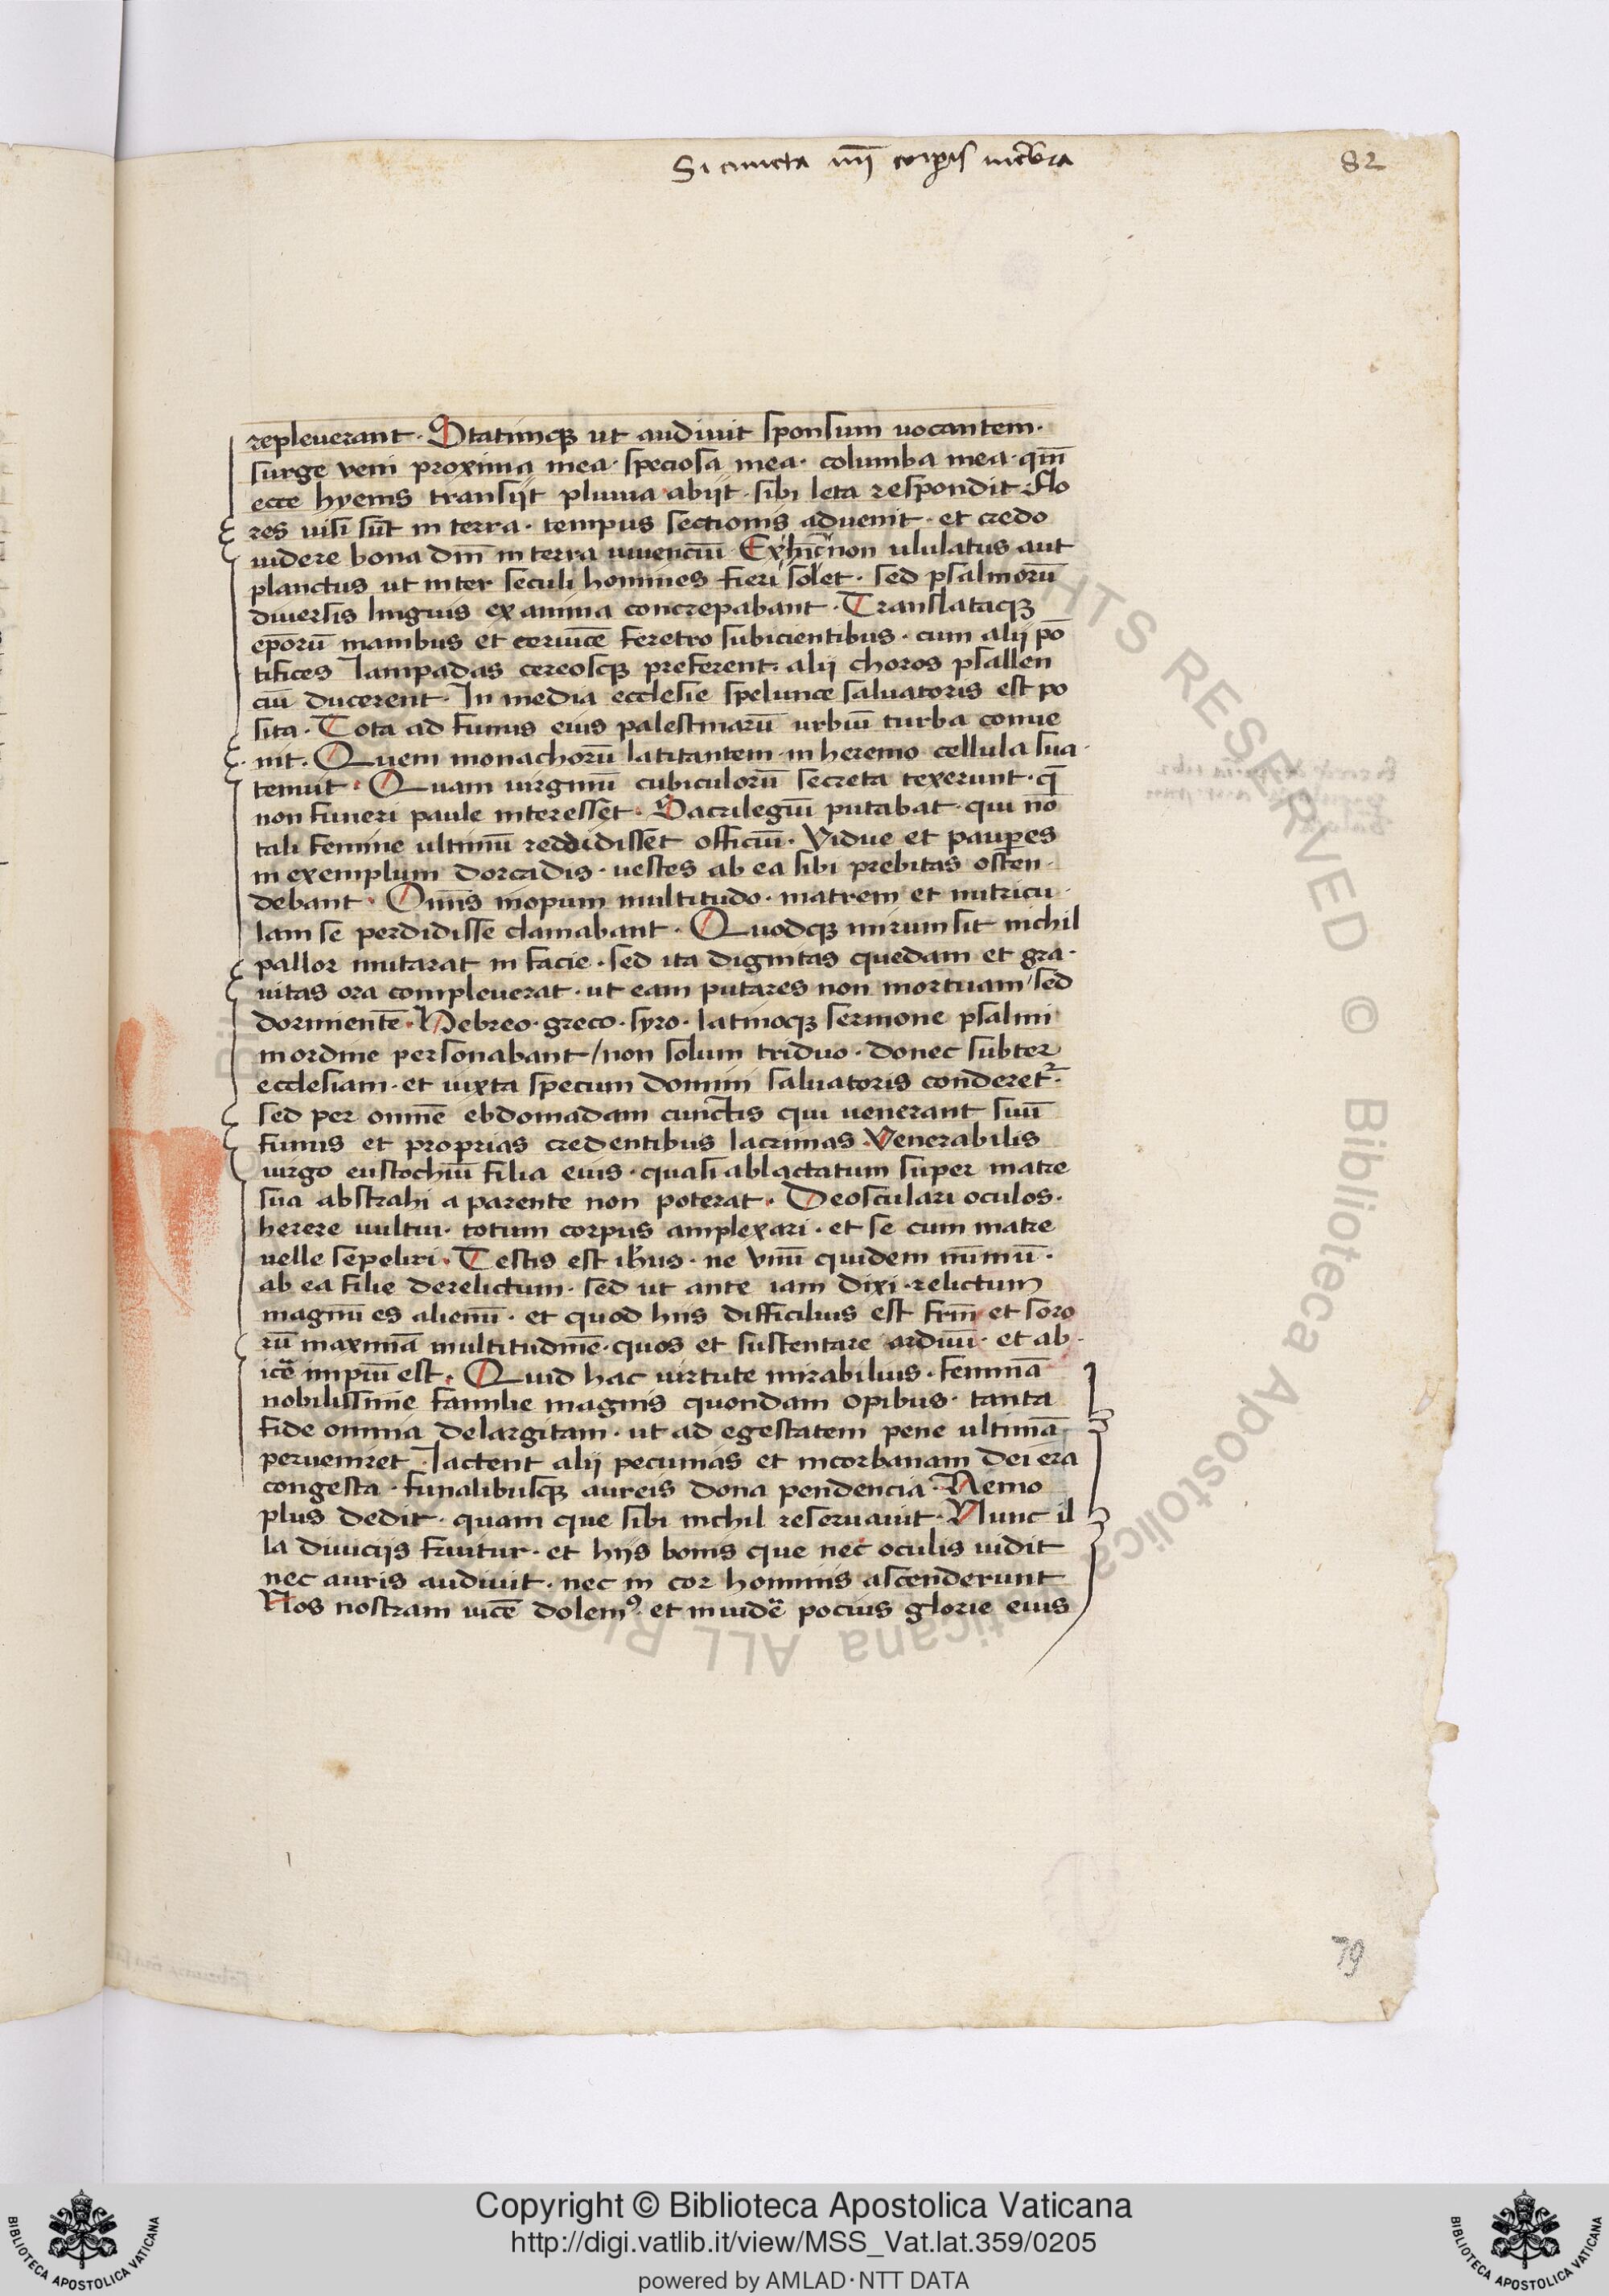 Si cuncta mī corp̱is mēbra
82
repleuerant · Statimqꝫ ut audiuit sponsum uocantem ·
surge veni proxima mea · speciosa mea · columba mea · qm̄
ecce hyems transijt pluuia abijt · sibi leta respondit Flo
res uisi sūt in terra · tempus sectionis aduenit · et credo
uidere bona dm̄ in terra uiuenciū · Exhīc non ululatus aut
planctus ut inter seculi homines fieri solet · sed psalmorū
diuersis linguis examina concrepabant · Translataqꝫ
ep̄orū manibus et ceruicē feretro subicientibus · cum alij pō
tifices lampadas cereosqꝫ preferent · alij choros psallen
ciū ducerent · In media ecclesie spelunce saluatoris est po
sita · Tota ad funus eius palestinarū urbiū turba conue
nit · Quem monachorū latitantem in heremo cellula sua ·
tenuit · Quam uirginū cubiculorū secreta texerunt · q̄
non funeri paule interesset · Sacrilegiū putabat · qui nō
tali femine ultimū reddidisset officiū · Vidue et paup̱es
in exemplum dorcadis · uestes ab ea sibi prebitas osten ·
debant · Omīs inopum multitudo · matrem et nutricu ·
lam se perdidisse clamabant · Quodqꝫ mirum sit nichil
pallor mutarat in facie · sed ita dignitas quedam et gra ·
uitas ora compleuerat · ut eam putares non mortuam / sed
dormientē · Hebreo · greco · syro · latinoqꝫ sermone psalmi
in ordine personabant / non solum triduo · donec subter
ecclesiam · et iuxta specum domini saluatoris conderet᷑ ·
sed per omnē ebdomadam cunctis qui uenerant suū
funus et proprias credentibus lacrimas · Venerabilis
uirgo eustochiū filia eius · quasi ablactatum super matre
sua abstrahi a parente non poterat · Deosculari oculos ·
herere uultui · totum corpus amplexari · et se cum matre
uelle sepeliri · Testis est ihūs · ne vnū quidem nūmū ·
ab ea filie derelictum · sed ut ante iam dixi · relictum
magnū es alienū · et quod hiis difficilius est frm̄ et soro
rū maximā multitudinē · quos et sustentare arduū · et ab ·
icē impiū est · Quid hac uirtute mirabilius · feminā
nobilissime familie magnis quondam opibus · tanta
fide omnia delargitam · ut ad egestatem pene ultimā
perueniret · Iactent alij pecunias et in corbanam dei era
congesta · funalibusqꝫ aureis dona pendencia · Nemo
plus dedit · quam que sibi nichil reseruauit · Nunc il
la diuicijs fruitur · et hijs bonis que nec oculis uidit
nec auris audiuit · nec in cor hominis ascenderunt
Nos nostram uicē dolem⁹ · et inuidē pocius glorie eius
79
BIBLIOTECA APOSTOLICA VATICANA
Copyright © Biblioteca Apostolica Vaticana
http://digi.vatlib.it/view/MSS_Vat.lat.359/0205
powered by AMLAD·NTT DATA
BIBLIOTECA APOSTOLICA VATICANA